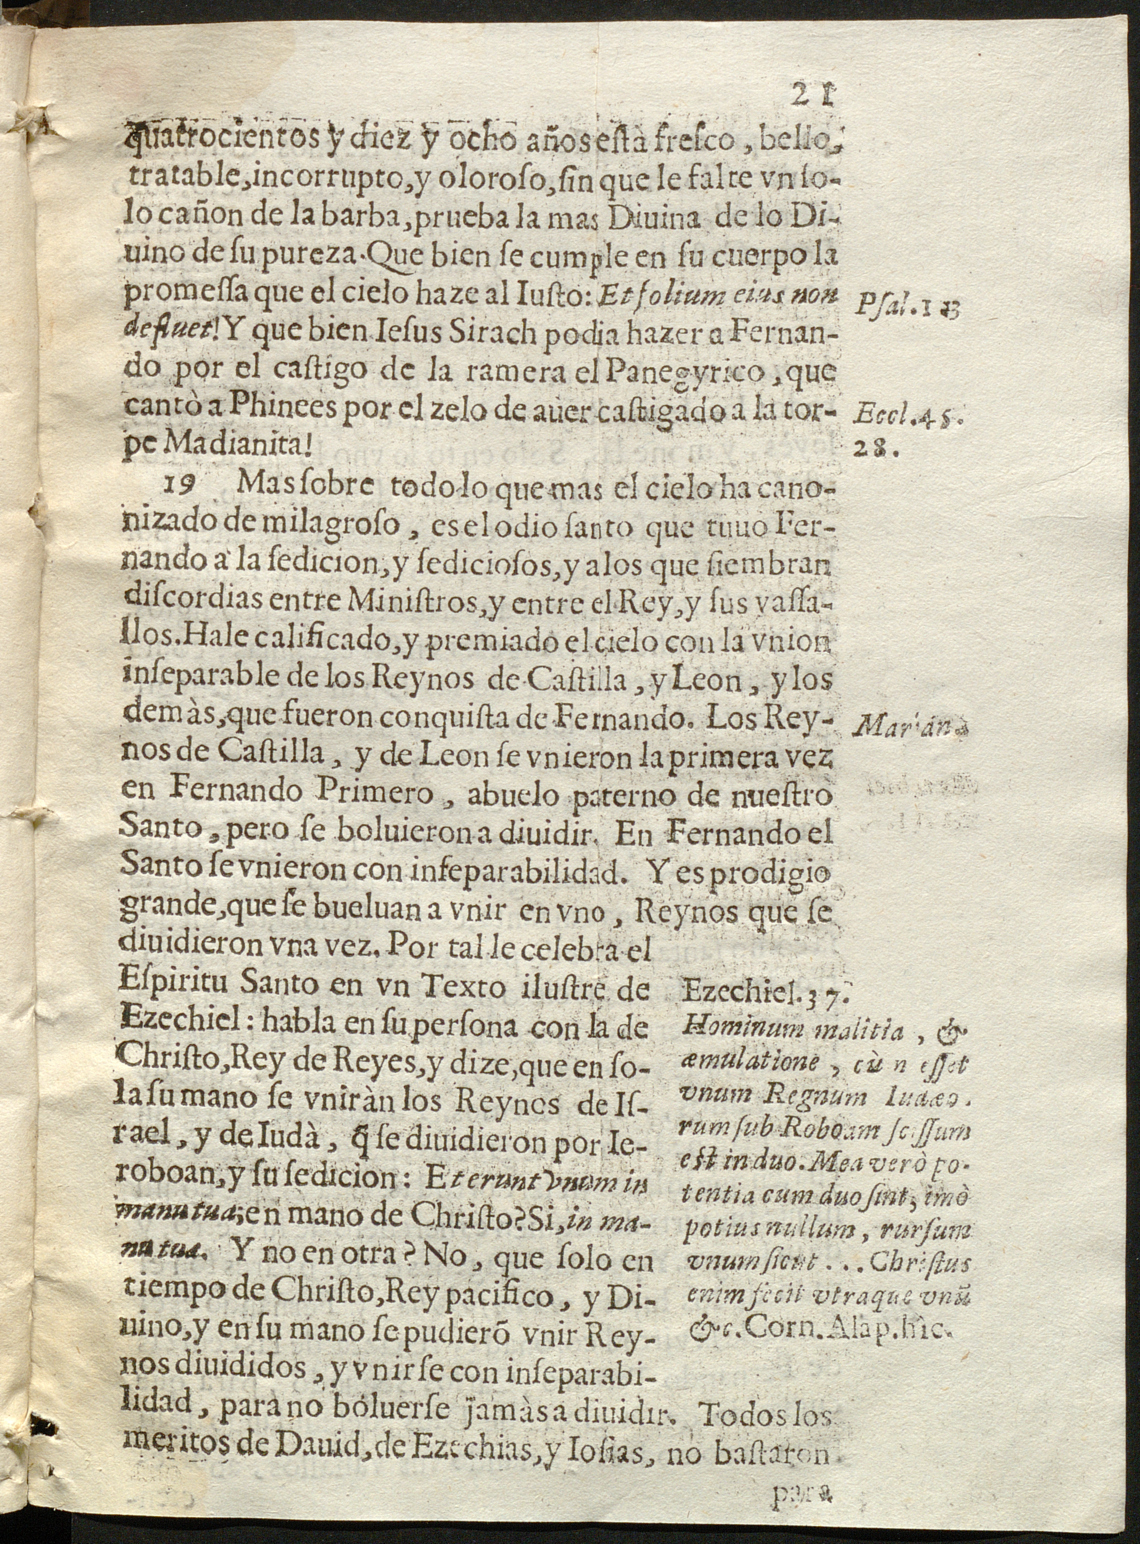 21
quatrocientos y diez y ocho años està fresco, bello,
tratable, incorrupto, y oloroso, sin que le falte vn so-
lo cañon de la barba, prueba la mas Diuina de lo Di-
uino de su pureza. Que bien se cumple en su cuerpo la
promessa que el cielo haze al Iusto: Et folium eius non
defluet! Y que bien Iesus Sirach podia hazer a Fernan-
do por el castigo de la ramera el Panegyrico, que
cantò a Phinees por el zelo de auer castigado a la tor-
pe Madianita!
Psal. 1
Eccl. 45.
28.
19 Mas sobre todo lo que mas el cielo ha cano-
nizado de milagroso, es el odio santo que tuuo Fer-
nando a la sedicion, y sediciosos, y a los que siembran
discordias entre Ministros, y entre el Rey, y sus vassa-
llos. Hale calificado, y premiado el cielo con la vnion
inseparable de los Reynos de Castilla, y Leon, y los
demàs, que fueron conquista de Fernando. Los Rey-
nos de Castilla, y de Leon se vnieron la primera vez
en Fernando Primero, abuelo paterno de nuestro
Santo, pero se boluieron a diuidir. En Fernando el
Santo se vnieron con inseparabilidad. Y es prodigio
grande, que se bueluan a vnir en vno, Reynos que se
diuidieron vna vez. Por tal le celebra el
Espiritu Santo en vn Texto ilustre de
Ezechiel: habla en su persona con la de
Christo, Rey de Reyes, y dize, que en so-
la su mano se vniràn los Reynos de Is-
rael, y de Iudà, q̃ se diuidieron por Ie-
roboan, y su sedicion: Et erunt vnum in
manu tua; en mano de Christo? Si, in ma-
nu tua. Y no en otra? No, que solo en
tiempo de Christo, Rey pacifico, y Di-
uino, y en su mano se pudierõ vnir Rey-
nos diuididos, y vnirse con inseparabi-
lidad, para no boluerse jamàs a diuidir. Todos los
meritos de Dauid, de Ezechias, y Iosias, no bastaron
para
Marian
Ezechiel. 37.
Hominum malitia, &
æmulatione, cùn esset
vnum Regnum Iudæo-
rum sub Roboam scissum
est in duo. Mea verò po-
tentia cum duo sint, imò
potius nullum, rursum
vnum fient... Christus
enim fecit vtraque vnũ
&c. Corn. Alap. hic.